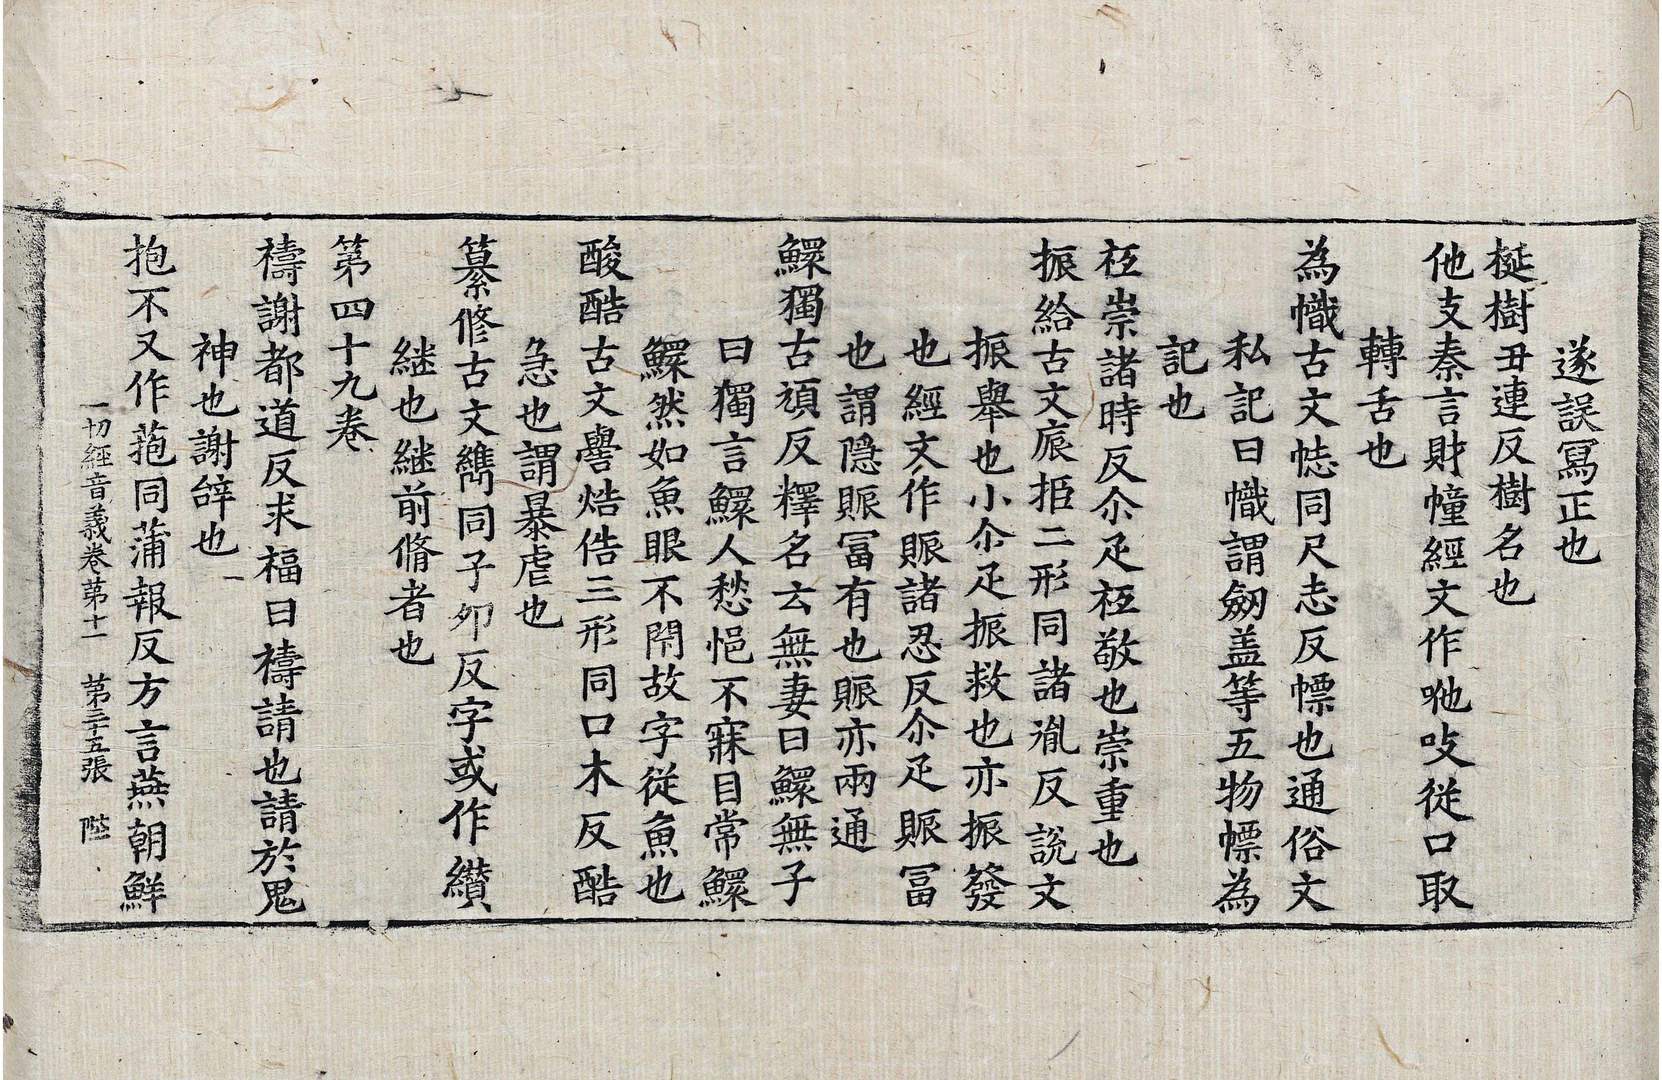 遂誤冩正也
梴樹丑連反樹名也
他支秦言財幢經文作𠰷吱從口取
轉舌也
為幟古文㤝同尺志反幖也通俗文
私記曰幟謂劒盖等五物幖為
記也
祇崇諸時反尒疋祇敬也崇重也
振給古文𢊁挋二形同諸胤反說文
振舉也小尒疋振救也亦振發
也經文作賑諸忍反尒疋賑冨
也謂隠賑冨有也賑亦兩通
鰥獨古頑反釋名云無妻曰鰥無子
曰獨言鰥人愁悒不寐目常鰥
鰥然如魚眼不閇故字從魚也
酸酷古文嚳焅俈三形同口木反酷
急也謂暴虐也
纂修古文䌣同子夘反字或作纘
継也継前脩者也
第四十九卷
禱謝都道反求福曰禱請也請於鬼
神也謝辝也
抱不又作菢同蒲報反方言燕朝鮮
一切經音義卷第十一 第三十五張 陛